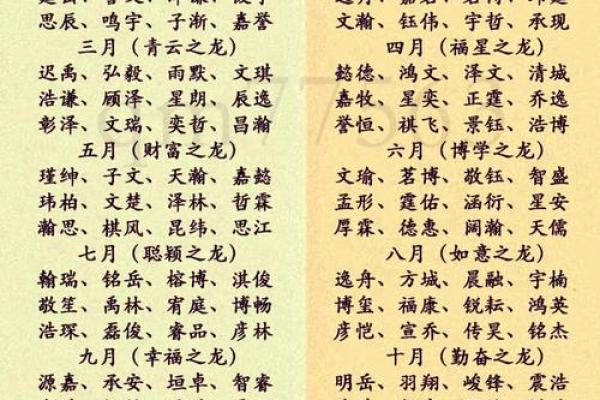 思辰、鸣宇、子渐、嘉誉
三月（青云之龙）
迟禹、弘毅、雨默、文琪
浩谦、顾泽、星朗、辰逸
彰泽、文瑞、奕哲、昌瀚
五月（财富之龙）
瑾绅、子文、天瀚、嘉懿
玮柏、文楚、泽林、哲霖
瀚思、棋风、昆纬、思江
七月（聪颖之龙）
翰瑞、铭岳、榕博、淇俊
敬笙、禹林、宥庭、博畅
浩琛、磊俊、睿品、彦林
九月（幸福之龙）
源嘉、承安、垣卓、智睿
文瀚、钰伟、宇哲、承现
四月（福星之龙）
懿德、鸿文、泽文、清城
嘉牧、星奕、正霆、乔逸
誉恒、祺飞、景钰、浩博
六月（博学之龙）
文瑜、茗博、敬钰、智盛
孟形、霆佑、涵衍、星安
厚霖、德惠、阔瀚、天儒
八月（如意之龙）
逸舟、方城、晨融、宇楠
博玺、福康、锐耘、鸿英
彦恺、宣乔、传昊、铭杰
十月（勤奋之龙）
明岳、羽翔、峻锋、震浩